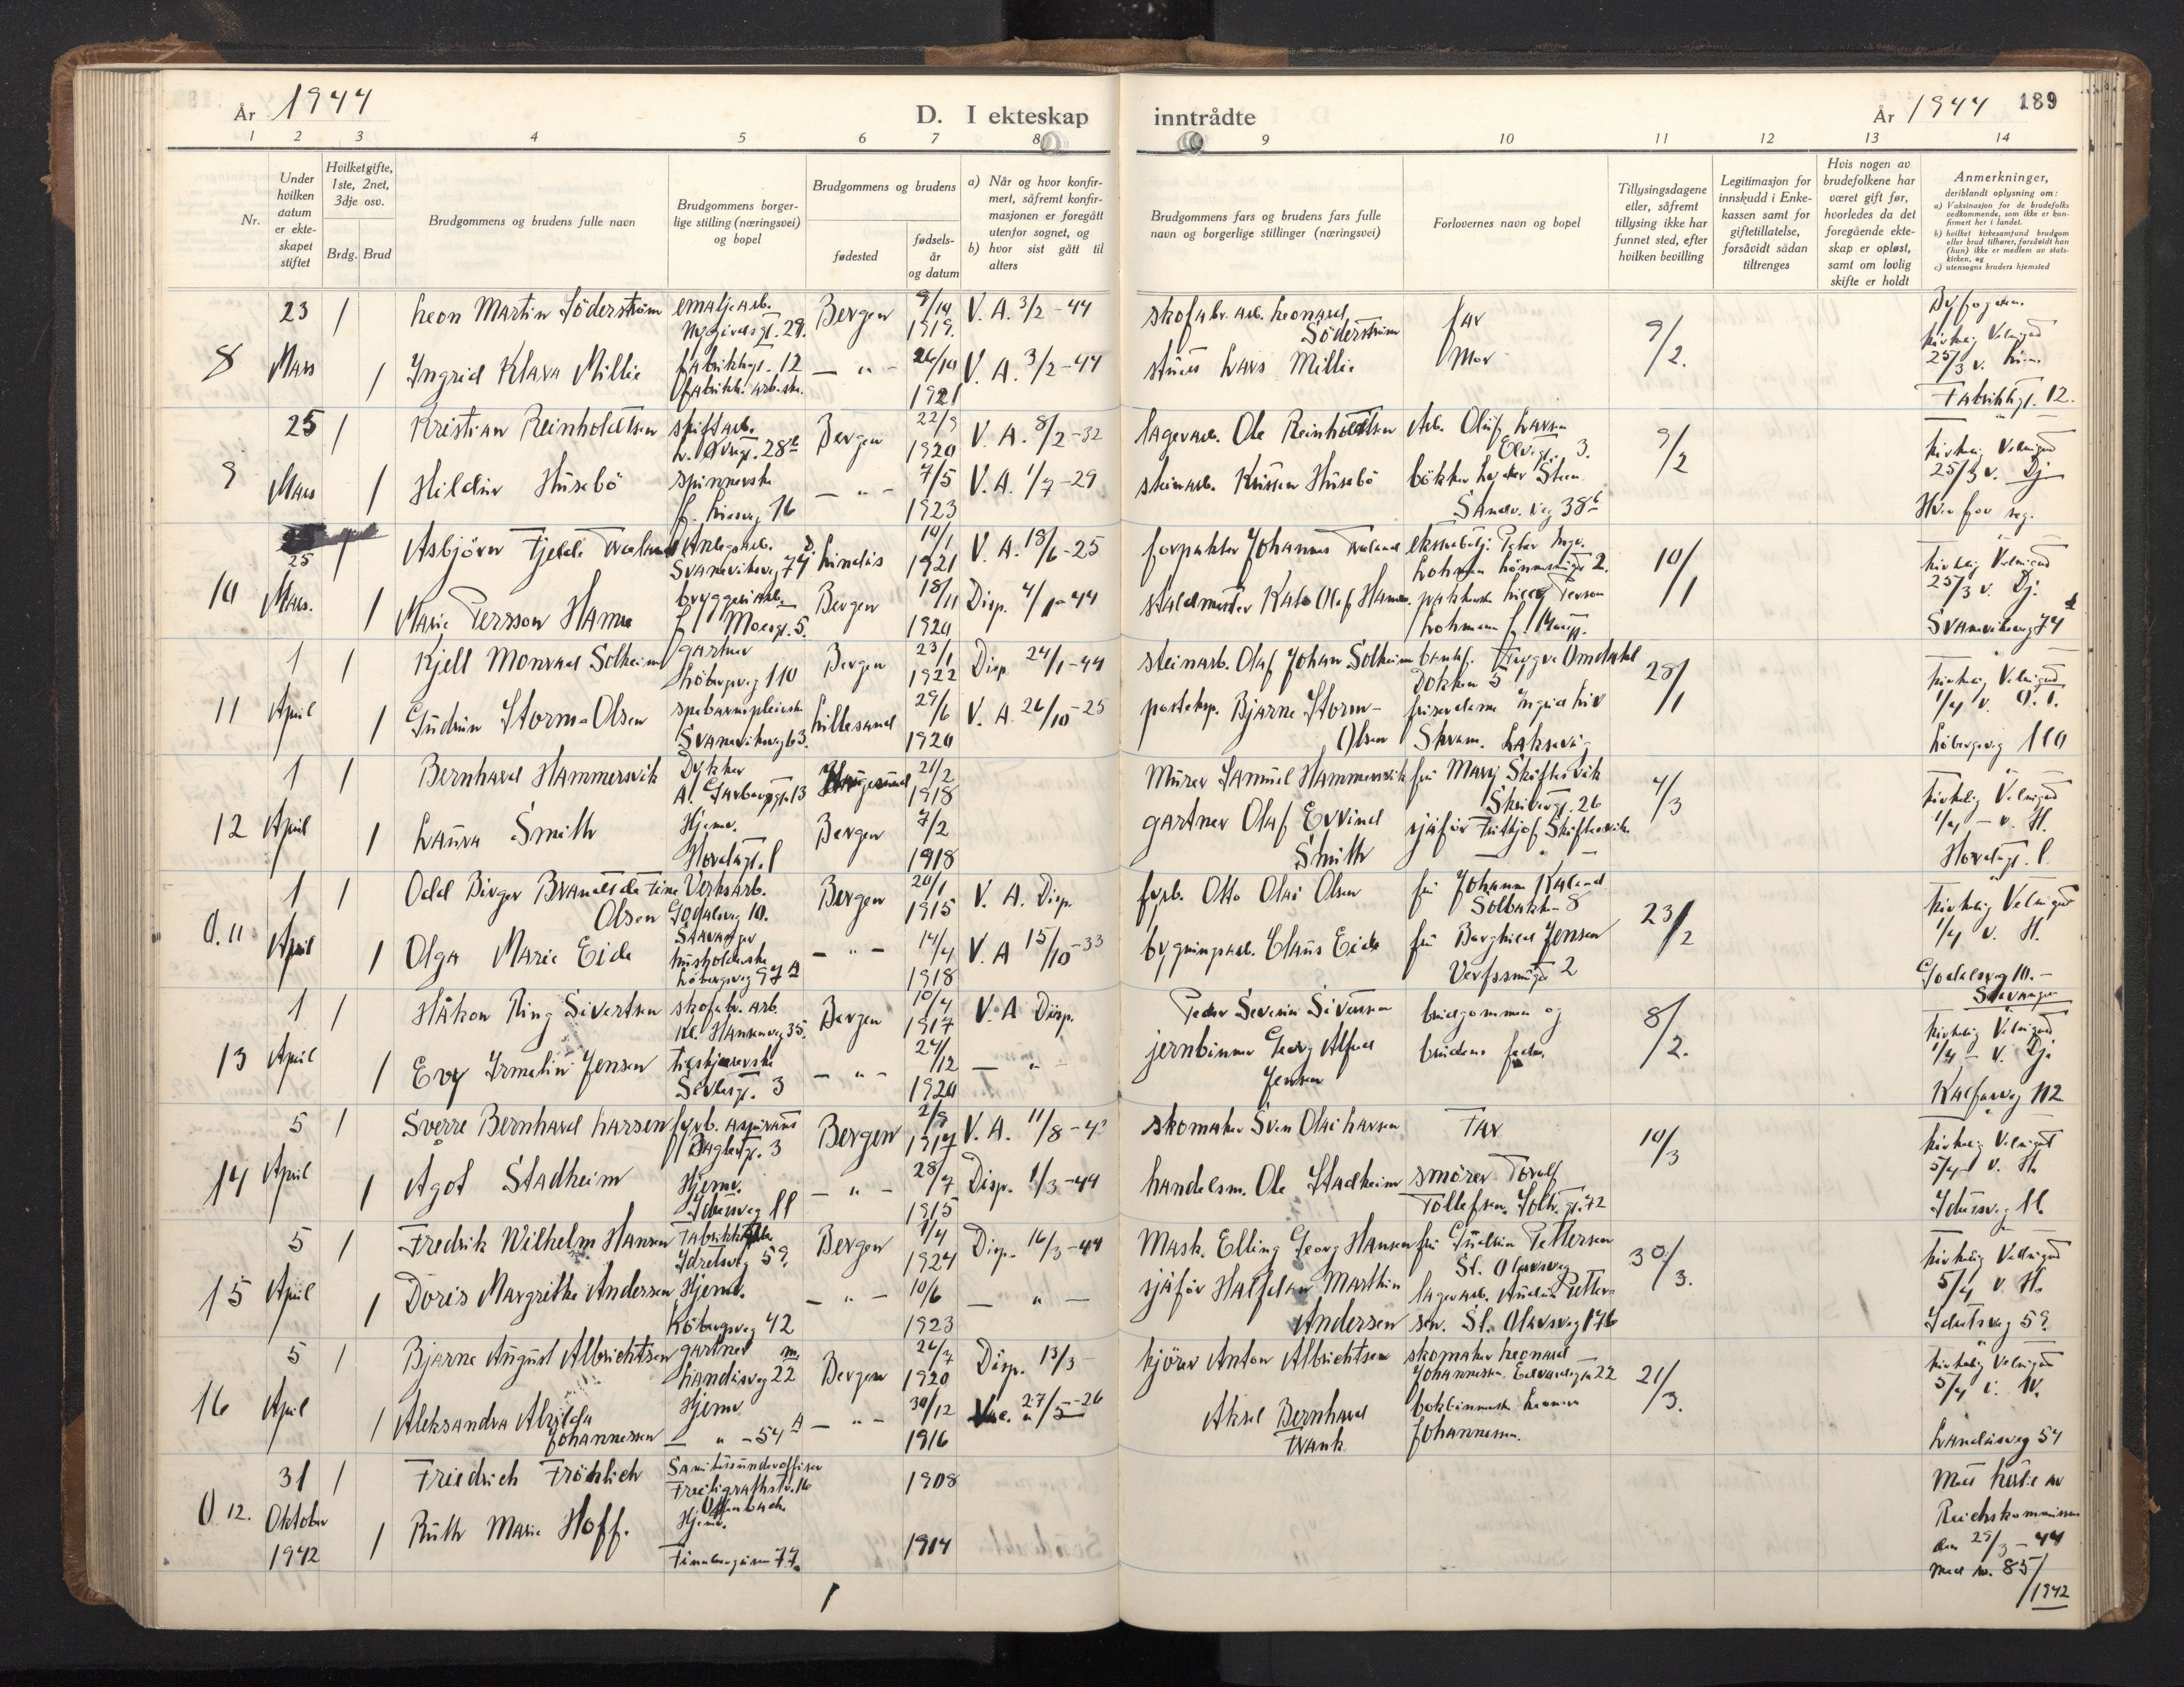 År 1944
D. I ekteskap inntrådte
År 1944 189
1 2 3 4 5 6 7 8 9 10 11 12 13 14
Nr.
Under hvilken datum er ekteskapet stiftet
Hvilketgifte, 1ste, 2net, 3dje osv.
Brdg. Brud
Brudgommens og brudens fulle navn
Brudgommens borgerlige stilling (næringsvei) og bopel
Brudgommens og brudens
fødested
fødselsår og datum
a) Når og hvor konfirmert, såfremt konfirmasjonen er foregått utenfor sognet, og
b) hvor sist gått til alters
Brudgommens fars og brudens fars fulle navn og borgerlige stillinger (næringsvei)
Forlovernes navn og bopel
Tillysingsdagene eller, såfremt tillysing ikke har funnet sted, efter hvilken bevilling
Legitimasjon for innskudd i Enkekassen samt for giftetillatelse, forsåvidt sådan tiltrenges
Hvis nogen av brudefolkene har været gift før, hvorledes da det foregående ekteskap er opløst, samt om lovlig skifte er holdt
Anmerkninger,
deriblandt oplysning om:
a) Vaksinasjon for de brudefolks vedkommende, som ikke er konfirmert her i landet.
b) hvilket kirkesamfund brudgom eller brud tilhører, forsåvidt han (hun) ikke er medlem av statskirken, og
c) utensogns bruders hjemsted
8
23 Mars
1 Leon Martin Söderström emaljearb. Nygårdsgt. 29. Bergen 9/10 1919. V. A. 3/2-44 skofabr. arb. Leonard Söderström far 9/2.
1 Ingrid Klara Millie Fabrikkgt. 12 fabrikk. arb.ske. - " - 26/10 1921 V. A. 3/2-44 Lars Millie Mor
Byfogden. Kirkelig Velsigned 25/3 v. Fabrikkgt. 12.
9
25 Mars
1 Kristian Reinholdtsen skiftarb. 28b Bergen 22/9 1920 V. A. 8/2-32 lagerarb. Ole Reinholdtsen Arb. Oluf Larsen Elvegt. 3. 9/2
1 Hildur Husebö spinnerske 16 - " - 7/5 1923 V. A. 1/7-29 steinarb. Husebö bökker Steen Sandv. veg 38b
Kirkelig Velsigned 25/3 v. Dj Hver for seg.
10
25 Mars.
1 Asbjörn Fjelde Træland Anlegsarb. Svaneviksveg 74d Lindås 10/1 1921 V. A. 18/6-25 forpakter Johannes Træland 10/1
1 Marie Persson Hamre bryggeriarb. Moergt. 5. Bergen 18/11 1920 Disp. 4/1-44 staldmester Olaf Hamre
Kirkelig Velsigned 25/3 v. Dj. Svaneviksveg 74d
11
1 April
1 Kjell Monrad Solheim gartner Löbergsveg 110 Bergen 23/1 1922 Disp. 24/1-44 steinarb. Olaf Johan Solheim bankf. Trygve Omdahl Dokken 5 28/1
1 Gudrun Storm-Olsen spebarnspleierske Svaneviksveg 63. Lillesand 29/6 1920 V. A. 26/10-25 posteksp. Bjarne Storm-Olsen frisørdame Ingrid Liv
Kirkelig Velsigned 1/4 v. O. L. Löbergsveg 110
12
1 April
1 Bernhard Hammersvik Dykker A. Garborgsgt. 13 Haugesund 21/2 1918 Murer Samuel Hammersvik fru Mary Skiftesvik 26 4/3
1 Laura Smith Hjemv. Hordagt. Bergen 7/2 1918 gartner Olaf Eivind Smith sjåför Fritkjof Skiftesvik - " -
Kirkelig Velsigned 1/4 - v. H. Hordagt.
O. 11.
1 April
1 Odd Birger Olsen Verksarb. Godalsveg 10. Stavanger Bergen 20/1 1915 V. A. Disp. fyrb. Otto Olai Olsen fru Johanne Kaland Solbakken 8 23/2
1 Olga Marie Eide husholderske Löbergsveg 97A - " - 14/4 1918 V. A 15/10-33 bygningsarb. Claus Eide fru Borghild Jensen Verftssmuget 2
Kirkelig Velsigned 1/4 v. H. Godalsveg 10. - Stavanger
13
1 April
1 Håkon Ring Sivertsen skofabr. arb. Kl. Hansensveg 35. Bergen 10/4 1917 V. A Disp. Peder Severin Sivertsen brudgommen og 8/2.
1 Evy Irmelin Jensen 3 - " - 24/12 1920 - " - jernbinner Georg Alfred Jensen brudens fedre.
Kirkelig Velsigned 1/4 - v. Dj. Kalfarveg 112
14
5 April
1 Sverre Bernhard Larsen fyrb. aspirant 3 Bergen 2/9 1917 V. A. 11/8-4 skomaker Sven Olai Larsen Far 10/3
1 Ågot Stadheim Hjemv. Idrettsveg 11 - " - 28/7 1915 Disp. 1/3-44 handelsm. Ole Stadheim smörer Toralf Tollefsen. 72
Kirkelig Velsigned 5/4 v. H. Idrettsveg 11.
15
5 April
1 Fredrik Wilhelm Hansen Idretsveg 59. Bergen 1/4 1924 Disp. 16/3-44 Mask. Elling Georg Hansen fru Gudrun Pettersen St. Olavsveg 30/3.
1 Doris Margrethe Andersen Hjemv. Löbergsveg 42 - " - 10/6 1923 - " - sjåför Halfdan Marthin Andersen lagerarb. Audun Pettersen. St. Olavsveg 176
Kirkelig Velsigned 5/4 v. H. Idretsveg 59.
16
5 April
1 Bjarne August Albrichtsen gartner Landåsveg 22 Bergen 26/7 1920 Disp. 13/3 - kjörer Anton Albrichtsen skomaker Leonard Johannessen. Edvardsgt 22 21/3.
1 Aleksandra Alvilda Johannessen Hjemv. - " - 54A - " - 30/12 1916 27/5-26 Aksel Bernhard Frank bokbinnerske Johannessen.
Kirkelig Velsigned 5/4 v. W. Landåsveg 54
O. 12.
31 Oktober 1942
1 Friedrich Fröhlich Sanitetsunderoffiser Freiligrathstr. 16 Offenbach 1908
1 Ruth Marie Hoff. Hjemv. Finnbergåsen 77. 1914
Reichskommissar den 29/3-44 med nr. 85/1942